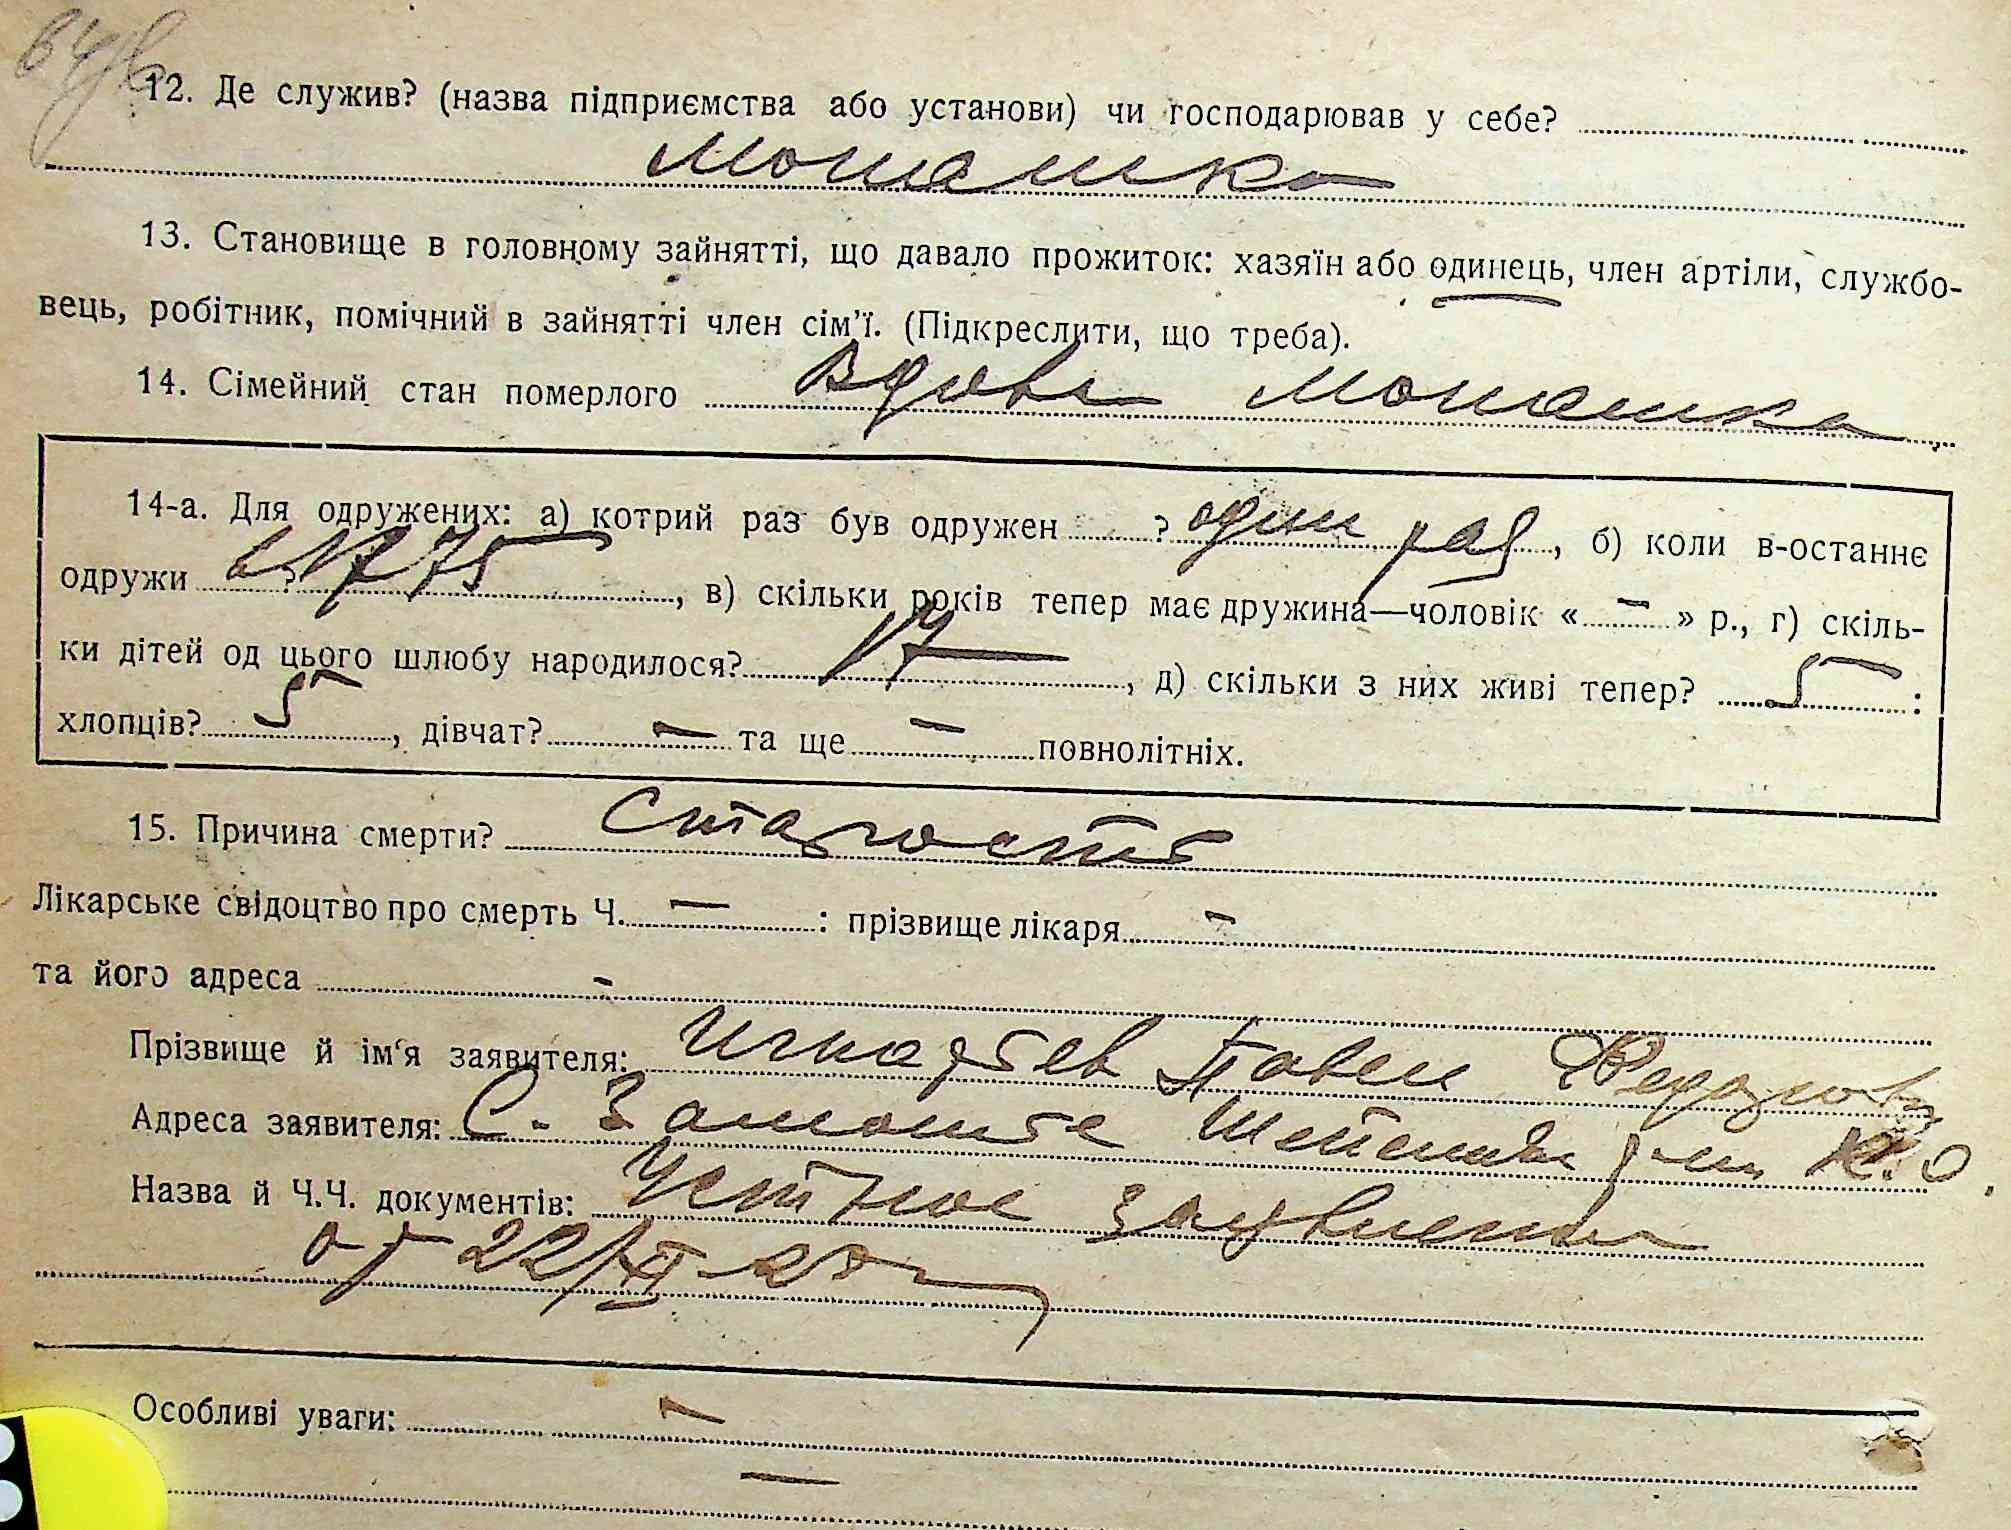 12. Де служив? (назва підприємства або установи) чи господарював у себе?
Монашка
13. Становище в головному зайнятті, що давало прожиток: хазяїн або одинець, член артіли, службо-
вець, робітник, помічний в зайнятті член сім'ї. (Підкреслити, що треба).
14. Сімейний стан померлого Вдова Монашка
14-а. Для одружених: а) котрий раз був одружен ? один раз, б) коли в-останнє
одружи ? в 1775, в) скільки років тепер має дружина—чоловік « — » р., г) скіль-
ки дітей од цього шлюбу народилося? 17, д) скільки з них живі тепер? 5 :
хлопців? 5, дівчат? — та ще — повнолітніх.
15. Причина смерти? Старость
Лікарське свідоцтво про смерть Ч. — : прізвище лікаря —
та його адреса —
Прізвище й ім'я заявителя: Игнатьев Павел Федоров
Адреса заявителя: С. Замостье К. О.
Назва й Ч.Ч. документів: Устное заявление
от 22/XI
Особливі уваги: —
—